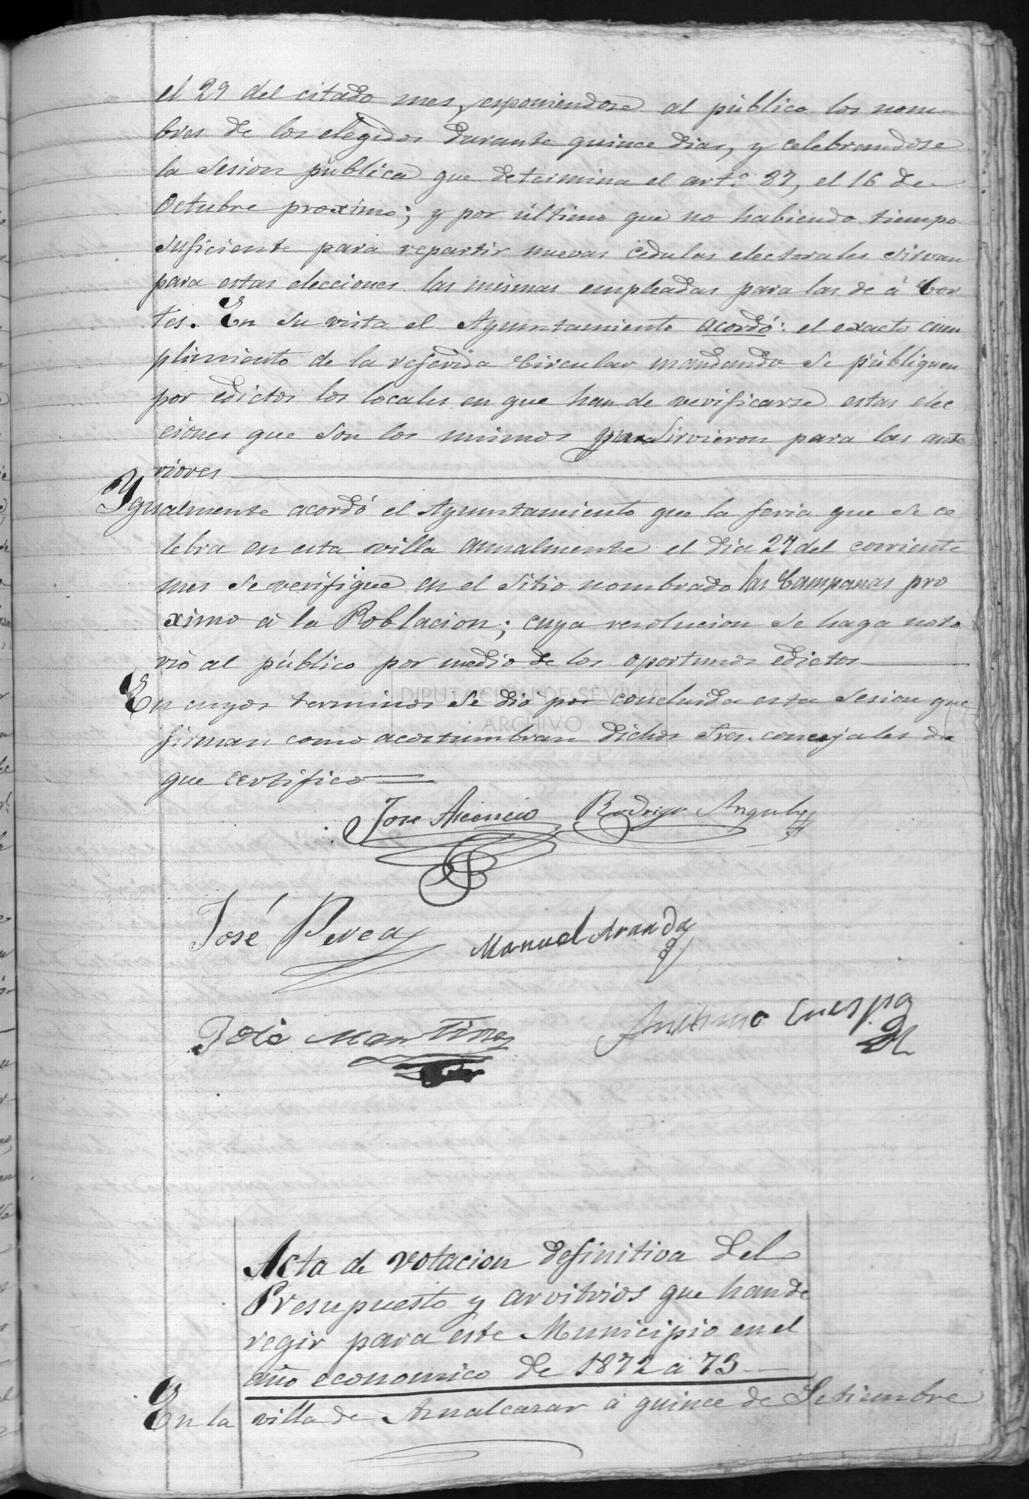 el 29 del citado mes, esponiendose al público los nom-
bres de los elegidos durante quince dias, y celebrandose
la Sesion pública que determina el artº 87, el 16 de
Octubre proximo; y por ultimo que no habiendo tiempo
suficiente para repartir nuevas cédulas electorales sirvan
para estas elecciones las mismas empleadas para las de á Cor
tes. En su vista el Ayuntamiento acordó: el exacto cum
plimiento de la referida Circular mandando se públiquen
por edictos los locales en que han de verificarse estas elec
ciones que son los mismos que sirvieron para las ante
riores
Ygualmente acordó el Ayuntamiento que la feria que se ce
lebra en esta villa anualmente el dia 27 del corriente
mes se verifique en el sitio nombrado las Campanas pro
ximo á la Poblacion; cuya resolucion se haga noto
rio al público por medio de los oportunos edictos
En cuyos terminos se dió por concluida esta Sesion que
firman como acostumbran dichos Sres. concejales de
que certifico
DIPUTACIÓN DE SEVILLA
ARCHIVO
Jose Asencio Rodrigo Angulo
José Perea Manuel Aranda
José Martinez Antonio Crespo
Acta de votacion definitiva del
Presupuesto y arvitrios que han de
regir para este Municipio en el
año economico de 1872 á 73
En la villa de Aznalcazar á quince de Setiembre